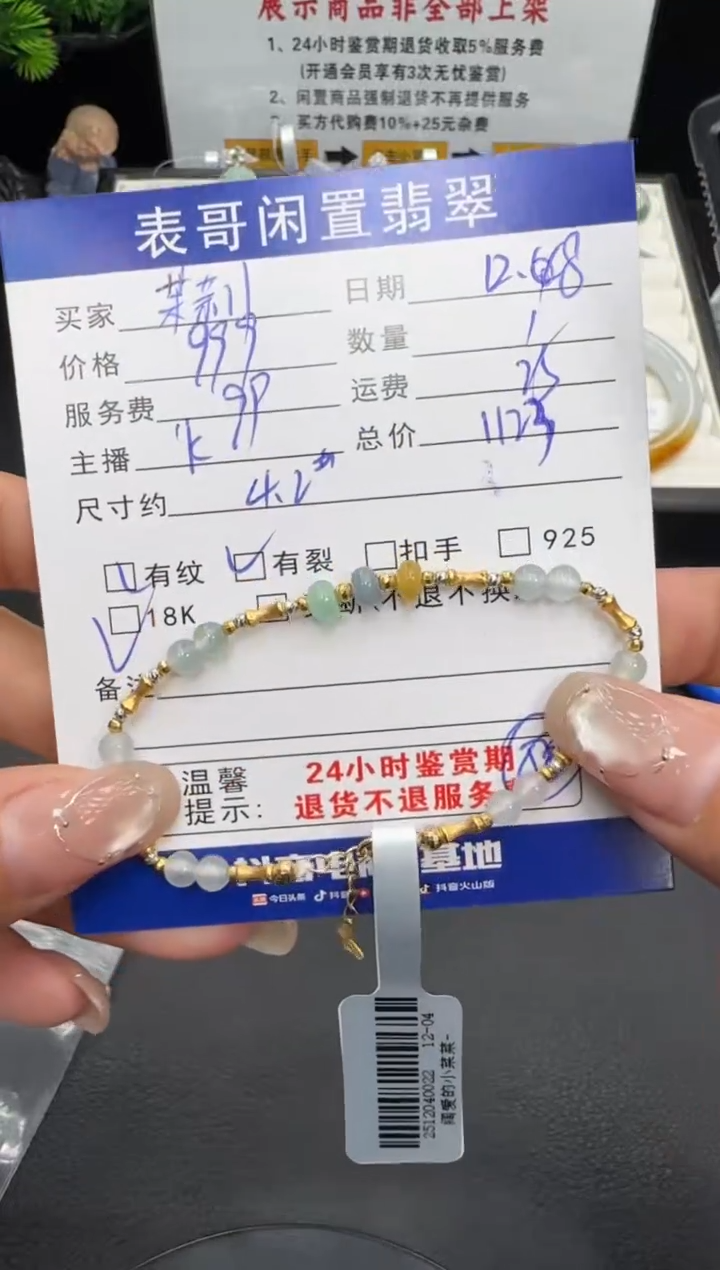 展示商品非全部上架
1、24小时鉴赏期退货收取5%服务费
(开通会员享有3次无忧鉴赏)
2、闲置商品强制退货不再提供服务
买方代购费10%+25元杂费
表哥闲置翡翠
买家 茉莉 日期
价格 999 数量 1
服务费 99 运费 25
主播 K 总价 1123
尺寸约 4.2
有纹 有裂 扣手 925
18K 不退不换
备注
温馨 24小时鉴赏期
提示: 退货不退服务
基地
今日头条 抖音 抖音火山版
2512040022 12-04
阔爱的小菜菜-